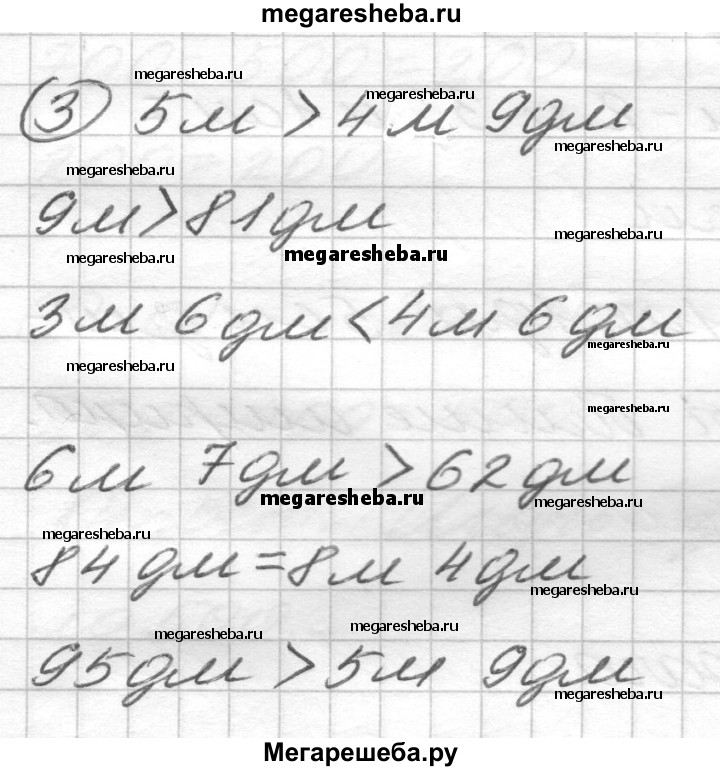 megaresheba.ru
megaresheba.ru
megaresheba.ru
③ 5м > 4м 9дм
megaresheba.ru
megaresheba.ru
9м > 81дм
megaresheba.ru
megaresheba.ru
megaresheba.ru
3м 6дм < 4м 6дм
megaresheba.ru
megaresheba.ru
megaresheba.ru
6м 7дм > 62дм
megaresheba.ru
megaresheba.ru
megaresheba.ru
84дм = 8м 4дм
megaresheba.ru
megaresheba.ru
megaresheba.ru
95дм > 5м 9дм
megaresheba.ru
Мегарешеба.ру